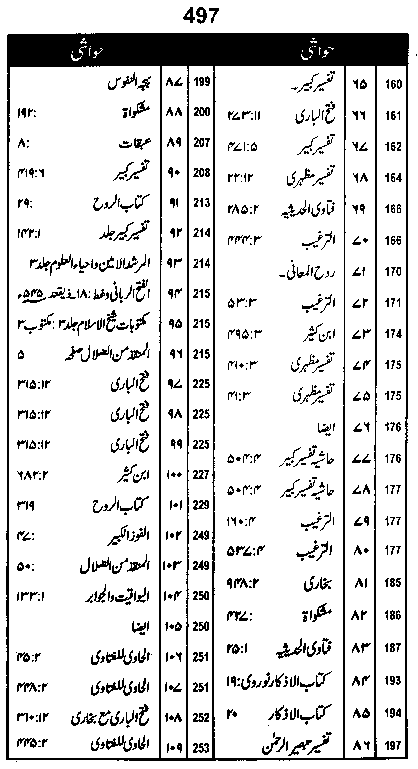 497
حواشی
160 ۶۵ تفسیر کبیر۔
161 ۶۶ فتح الباری ۴۷۳:۱۱
162 ۶۷ تفسیر کبیر ۴۷۱:۵
164 ۶۸ تفسیر مظہری ۲۲:۱۲
166 ۶۹ فتاوی الحدیثیہ ۲۸۵:۲
166 ۷۰ الترغیب ۴۴۴:۳
170 ۷۱ روح المعانی۔
171 ۷۲ الترغیب ۵۳:۳
174 ۷۳ ابن کثیر ۴۹۵:۳
175 ۷۴ تفسیر مظہری ۴۱۰:۳
175 ۷۵ تفسیر مظہری ۴۱:۳
176 ۷۶ ایضا
176 ۷۷ حاشیہ تفسیر کبیر ۵۰۴:۴
177 ۷۸ حاشیہ تفسیر کبیر ۵۰۴:۴
177 ۷۹ الترغیب ۱۶۰:۴
177 ۸۰ الترغیب ۵۳۷:۴
185 ۸۱ بخاری ۹۴۸:۲
186 ۸۲ مشکواۃ ۴۲۷:
187 ۸۳ فتاوی الحدیثیہ ۲۵:۱
193 ۸۴ کتاب الاذکار نوروی: ۱۹
194 ۸۵ کتاب الاذکار ۲۰
197 ۸۶ تفسیر الرحمٰن
حواشی
199 ۸۷ بہجہ النفوس
200 ۸۸ مشکواۃ ۱۹۲:
207 ۸۹ عبقات ۸:
208 ۹۰ تفسیر کبیر ۴۱۹:۶
213 ۹۱ کتاب الروح ۲۹:
214 ۹۲ تفسیر کبیر جلد ۱۴۲:۱
214 ۹۳ المرشد الامین و احیاء العلوم جلد ۳
215 ۹۴ الفتح الربانی وعظ: ۱۸۔ذیقعد ۵۴۵ء
215 ۹۵ مکتوبات شیخ الاسلام جلد ۳: مکتوب ۳
215 ۹۶ المنقذ من الضلال صفحہ ۵
225 ۹۷ فتح الباری ۳۱۵:۱۲
225 ۹۸ فتح الباری ۳۱۵:۱۲
225 ۹۹ فتح الباری ۳۱۵:۱۲
227 ۱۰۰ ابن کثیر ۶۸۲:۲
229 ۱۰۱ کتاب الروح ۳۱۹
249 ۱۰۲ الفوز الکبیر ۴۷:
249 ۱۰۳ المنقذ من الضلال ۵۰:
250 ۱۰۴ الیواقیت والجواہر ۱۳۳:۱
250 ۱۰۵ ایضا
251 ۱۰۶ الحاوی للفتاوی ۴۵:۲
251 ۱۰۷ الحاوی للفتاوی ۴۴۸:۲
252 ۱۰۸ فتح الباری مع بخاری ۳۱۰:۱۲
253 ۱۰۹ الحاوی للفتاوی ۴۴۵:۲